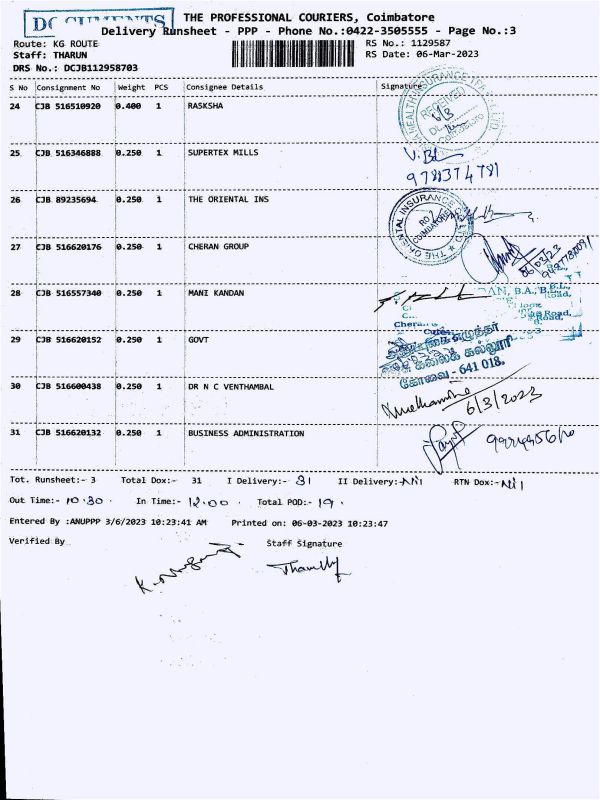 DOCUMENTS
THE PROFESSIONAL COURIERS, Coimbatore
Delivery Runsheet - PPP - Phone No.:0422-3505555 - Page No.:3
Route: KG ROUTE
RS No.: 1129587
Staff: THARUN
RS Date: 06-Mar-2023
DRS No.: DCJB112958703
S No Consignment No Weight PCS Consignee Details Signature
24 CJB 516510920 0.400 1 RASKSHA
HEALTH INSURANCE TPA
RECEIVED
6/3
Coimbatore
25 CJB 516346888 0.250 1 SUPERTEX MILLS
26 CJB 89235694 0.250 1 THE ORIENTAL INS
THE ORIENTAL INSURANCE CO LTD
COIMBATORE
27 CJB 516620176 0.250 1 CHERAN GROUP
06/03/23
28 CJB 516557340 0.250 1 MANI KANDAN
B.A., B.L.,
Road,
29 CJB 516620152 0.250 1 GOVT
கலைக் கல்லூரி
கோவை - 641 018.
30 CJB 516600438 0.250 1 DR N C VENTHAMBAL
6/3/2023
31 CJB 516620132 0.250 1 BUSINESS ADMINISTRATION
Tot. Runsheet:- 3 Total Dox:- 31 I Delivery:- 31 II Delivery:- Nil RTN Dox:- Nil
Out Time:- 10.30. In Time:- 12.00. Total POD:- 19.
Entered By :ANUPPP 3/6/2023 10:23:41 AM Printed on: 06-03-2023 10:23:47
Verified By Staff Signature